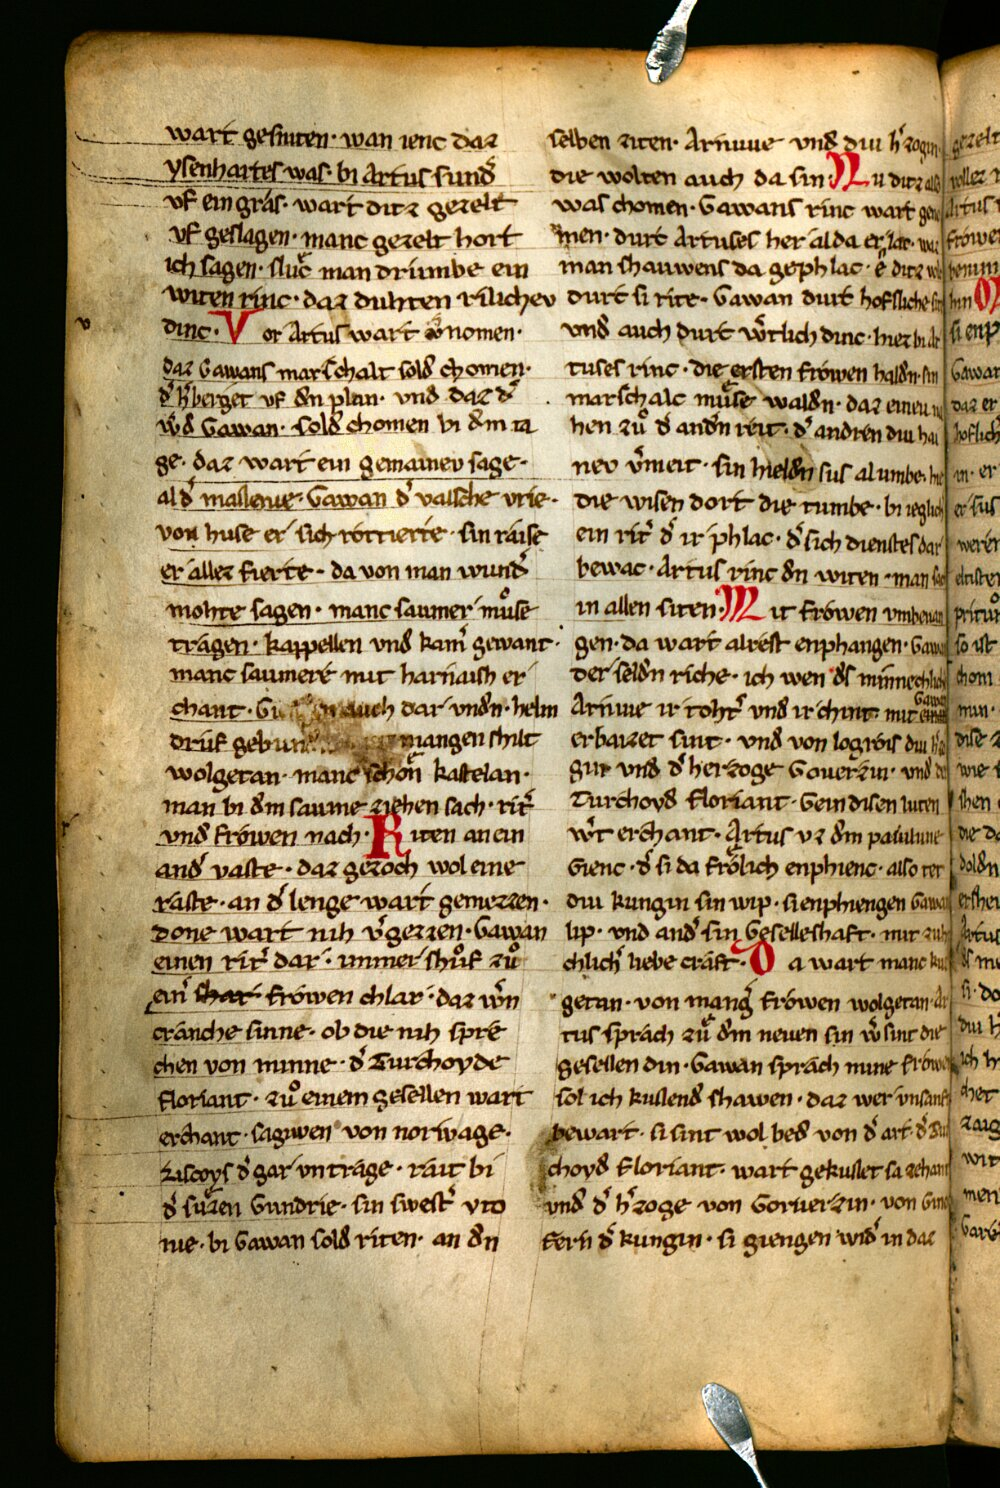 wart gesniten · wan ienc daz
ysenhartes was · bi Artus sundˢ
vf ein gras · wart ditz gezelt
vf geslagen · manc gezelt hort
ich sagen · sluͤc man drumbe ein
witen rinc · daz duhten rilichev
dinc · Vor Artus wart vˢnomen ·
daz Gawans marschalt sold chomen ·
dˢ hˢberget vf dn plan · vnd daz dˢ
wˢd Gawan · sold chomen bi dm ta
ge · daz wart ein gemainev sage ·
al dˢ massenie · Gawan dˢ valsche vrie ·
von huse er sich rottierte · sin raise
er allez fierte · da von man wundˢ
mohte sagen · manc saumer muͦse
tragen · kappellen vnd kamˢ gewant ·
manc saumere mit harnaish er
chant · auch dar vndn · helm
druf mangen shilt
wolgetan · manc schon kastelan ·
man bi dm saume ziehen sach · ritˢ
vnd frowen nach · Riten an ein
andˢ vaste · daz gezoch wol eine
raste · an dˢ lenge wart gemezzen ·
done wart nih vˢgezzen · Gawan
einen ritˢ dar · immer shuͦf zuͦ
einˢ shar frowen chlar · daz wˢn
cranche sinne · ob die nih spre
chen von minne · dˢ Turchoyde
floriant · zuͦ einem gesellen wart
erchant · saguven von norwage ·
Liscoys dˢ gar vntrage · rait bi
dˢ suͤzen Gundrie · sin swestˢ yto
nie · bi Gawan sold riten · an dn
selben ziten · Arniue vnd diu hˢzogin
die wolten auch da sin · Nu ditz als
was chomen · Gawans rinc wart gen
men · durt Artuses her alda er lac · waz
man shauwens da gephlac · e ditz
durt si rite · Gawan durt hofsliche sit
vnd auch durt wˢtlich dinc · hiez bi Ar
tuses rinc · die ersten frowen haldn · sin
marschalc muͤse waldn · daz einev
hen zuͦ dˢ andˢn reit · dˢ andren diu hai
nev vˢmeit · sin hieldn sus al umbe · hie
die wisen dort die tumbe · bi ieglich
ein ritˢ dˢ ir phlac · dˢ sich dienstes dar
bewac · Artus rinc dn witen · man sac
in allen siten · Mit frowen vmbevan
gen · da wart alrest enphangen · Gawa
der seldn riche · ich wen ds minnechlich
Arniue ir tohtˢ vnd ir chint · mit
erbaizet sint · vnd von logrois diu hˢzo
gin vnd dˢ herzoge Gaverzin · vnd
Turchoyd floriant · Gein disen luten
wˢt erchant · Artus vz dm paulune
Gienc · dˢ si da frolich enphienc · also tet
diu kungin sin wip · si enphiengen Gawan
lip · vnd andˢ sin Geselleshaft · mit zuh
chlichˢ liebe craft · Da wart manc kus
getan · von mangˢ frowen wolgetan · Ar
tus sprach zuͤ dm neuen sin wˢ sint die
gesellen din · Gawan sprach mine frowen
sol ich kussend shawen · daz wer vnsanf
bewart · si sint wol bed von dˢ art · dˢ Tur
choyd floriant · wart gekusset sa zehant
vnd dˢ hˢzoge von Gorverzin · von Gino
fern dˢ kungin · si giengen widˢ in daz